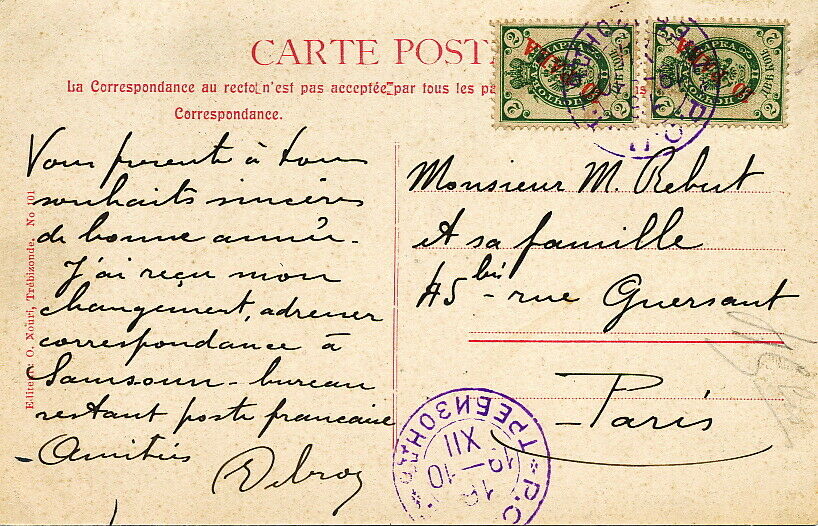 CARTE POST
La Correspondance au recto n'est pas acceptée par tous les pa is
Correspondance.
Vous presente à tous
souhaits sincéres
de bonne année.
J'ai reçu mon
changement, adresser
correspondance à
Samsoun - bureau
restant poste francaise
- Amitiés
Monsieur M. Rebut
et sa famille
45 bis - rue Guersant
Paris
Editeur: O. Nouri, Trébizonde, No 101
ТРЕБИЗОНДЪ
XII
10